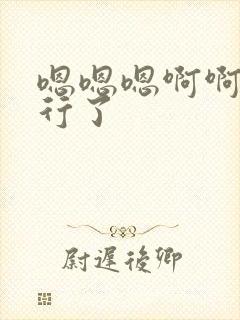 嗯嗯嗯啊啊
行了
尉遲後卿